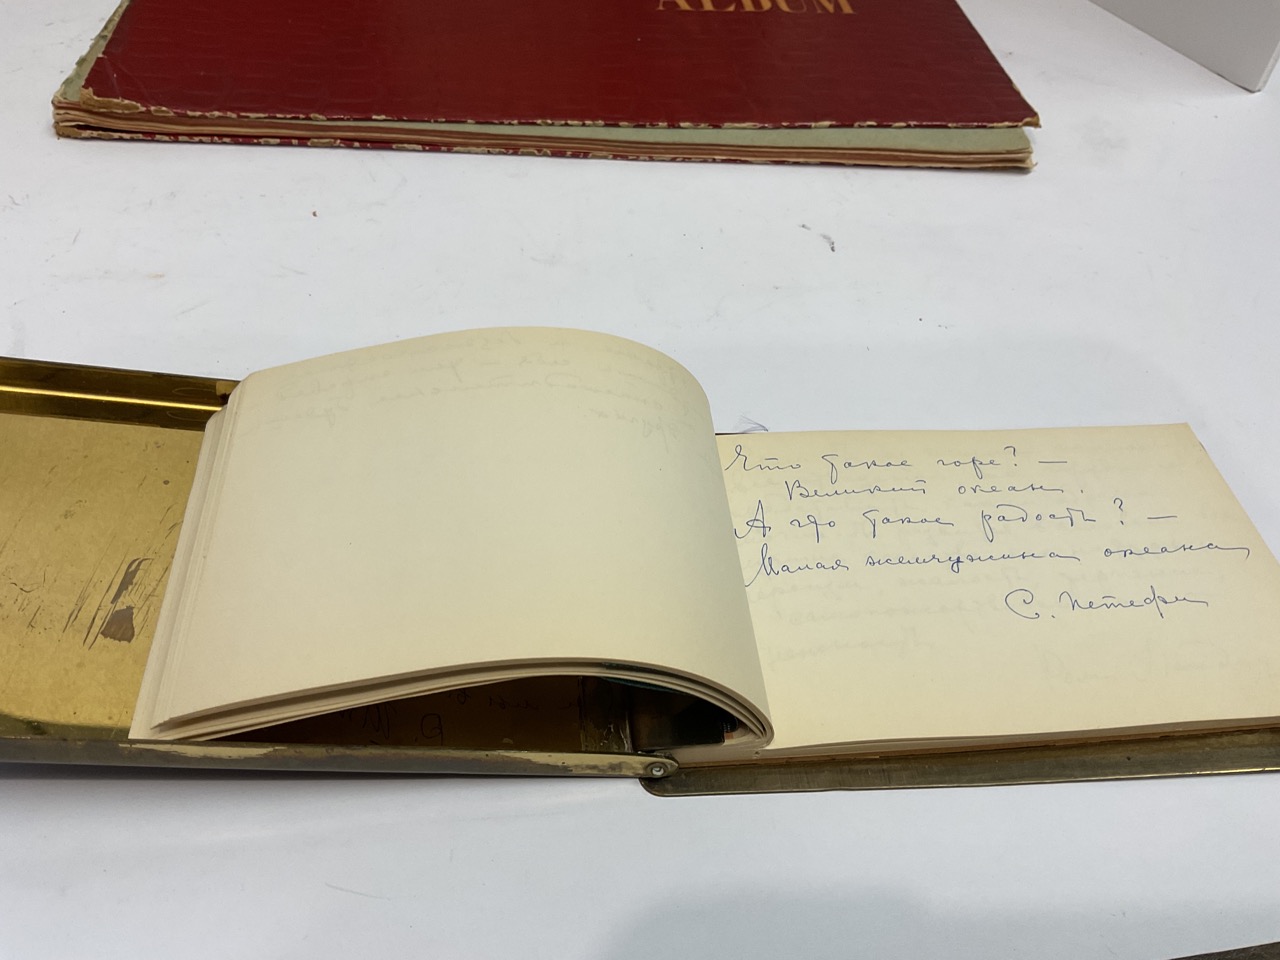 ALBUM
Что такое горе? —
Великий океан.
А что такое радость? —
Малая жемчужина океана
С. Петефи